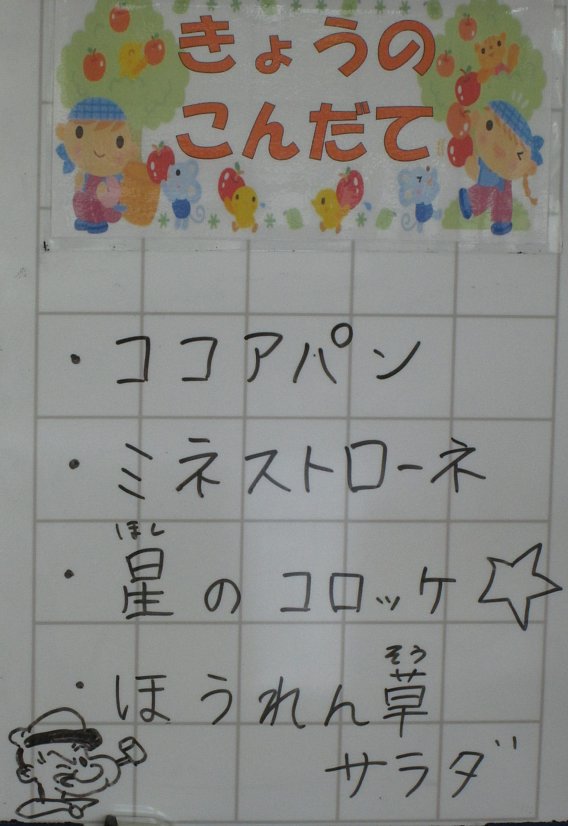 きょうの
こんだて
・ココアパン
・ミネストローネ
ほし
・星のコロッケ☆
そう
・ほうれん草
サラダ